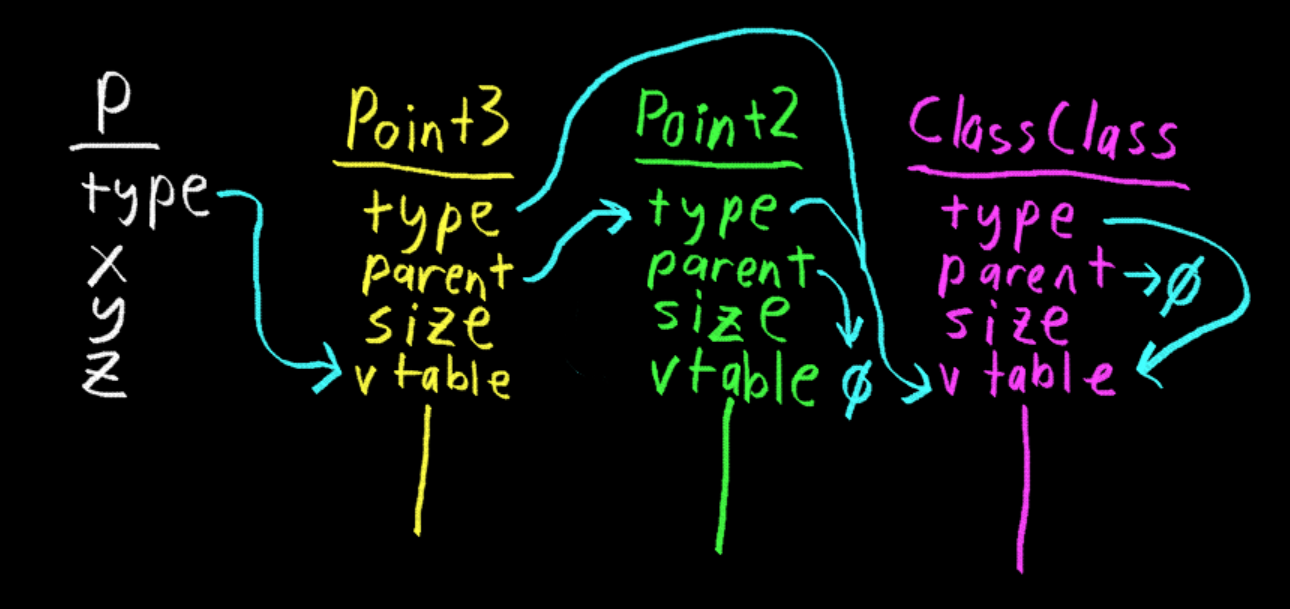 p
type
x
y
z
Point3
type
parent
size
vtable
Point2
type
parent
size
vtable
ϕ
ClassClass
type
parent → ϕ
size
vtable